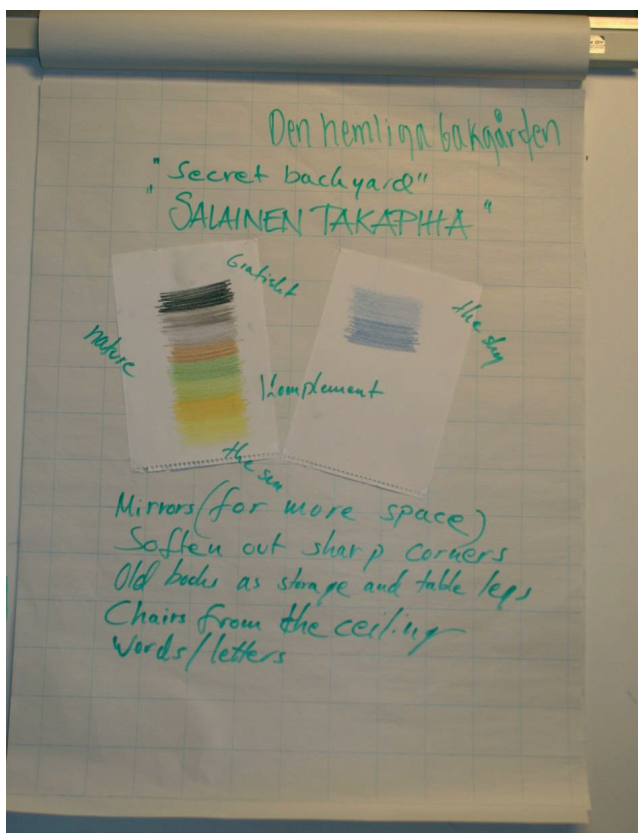 Den hemliga bakgården
"Secret backyard"
"SALAINEN TAKAPIHA"
Grafiskt
the sky
nature
Komplement
the sun
Mirrors (for more space)
Soften out sharp corners
Old books as storage and table legs
Chairs from the ceiling
Words/letters